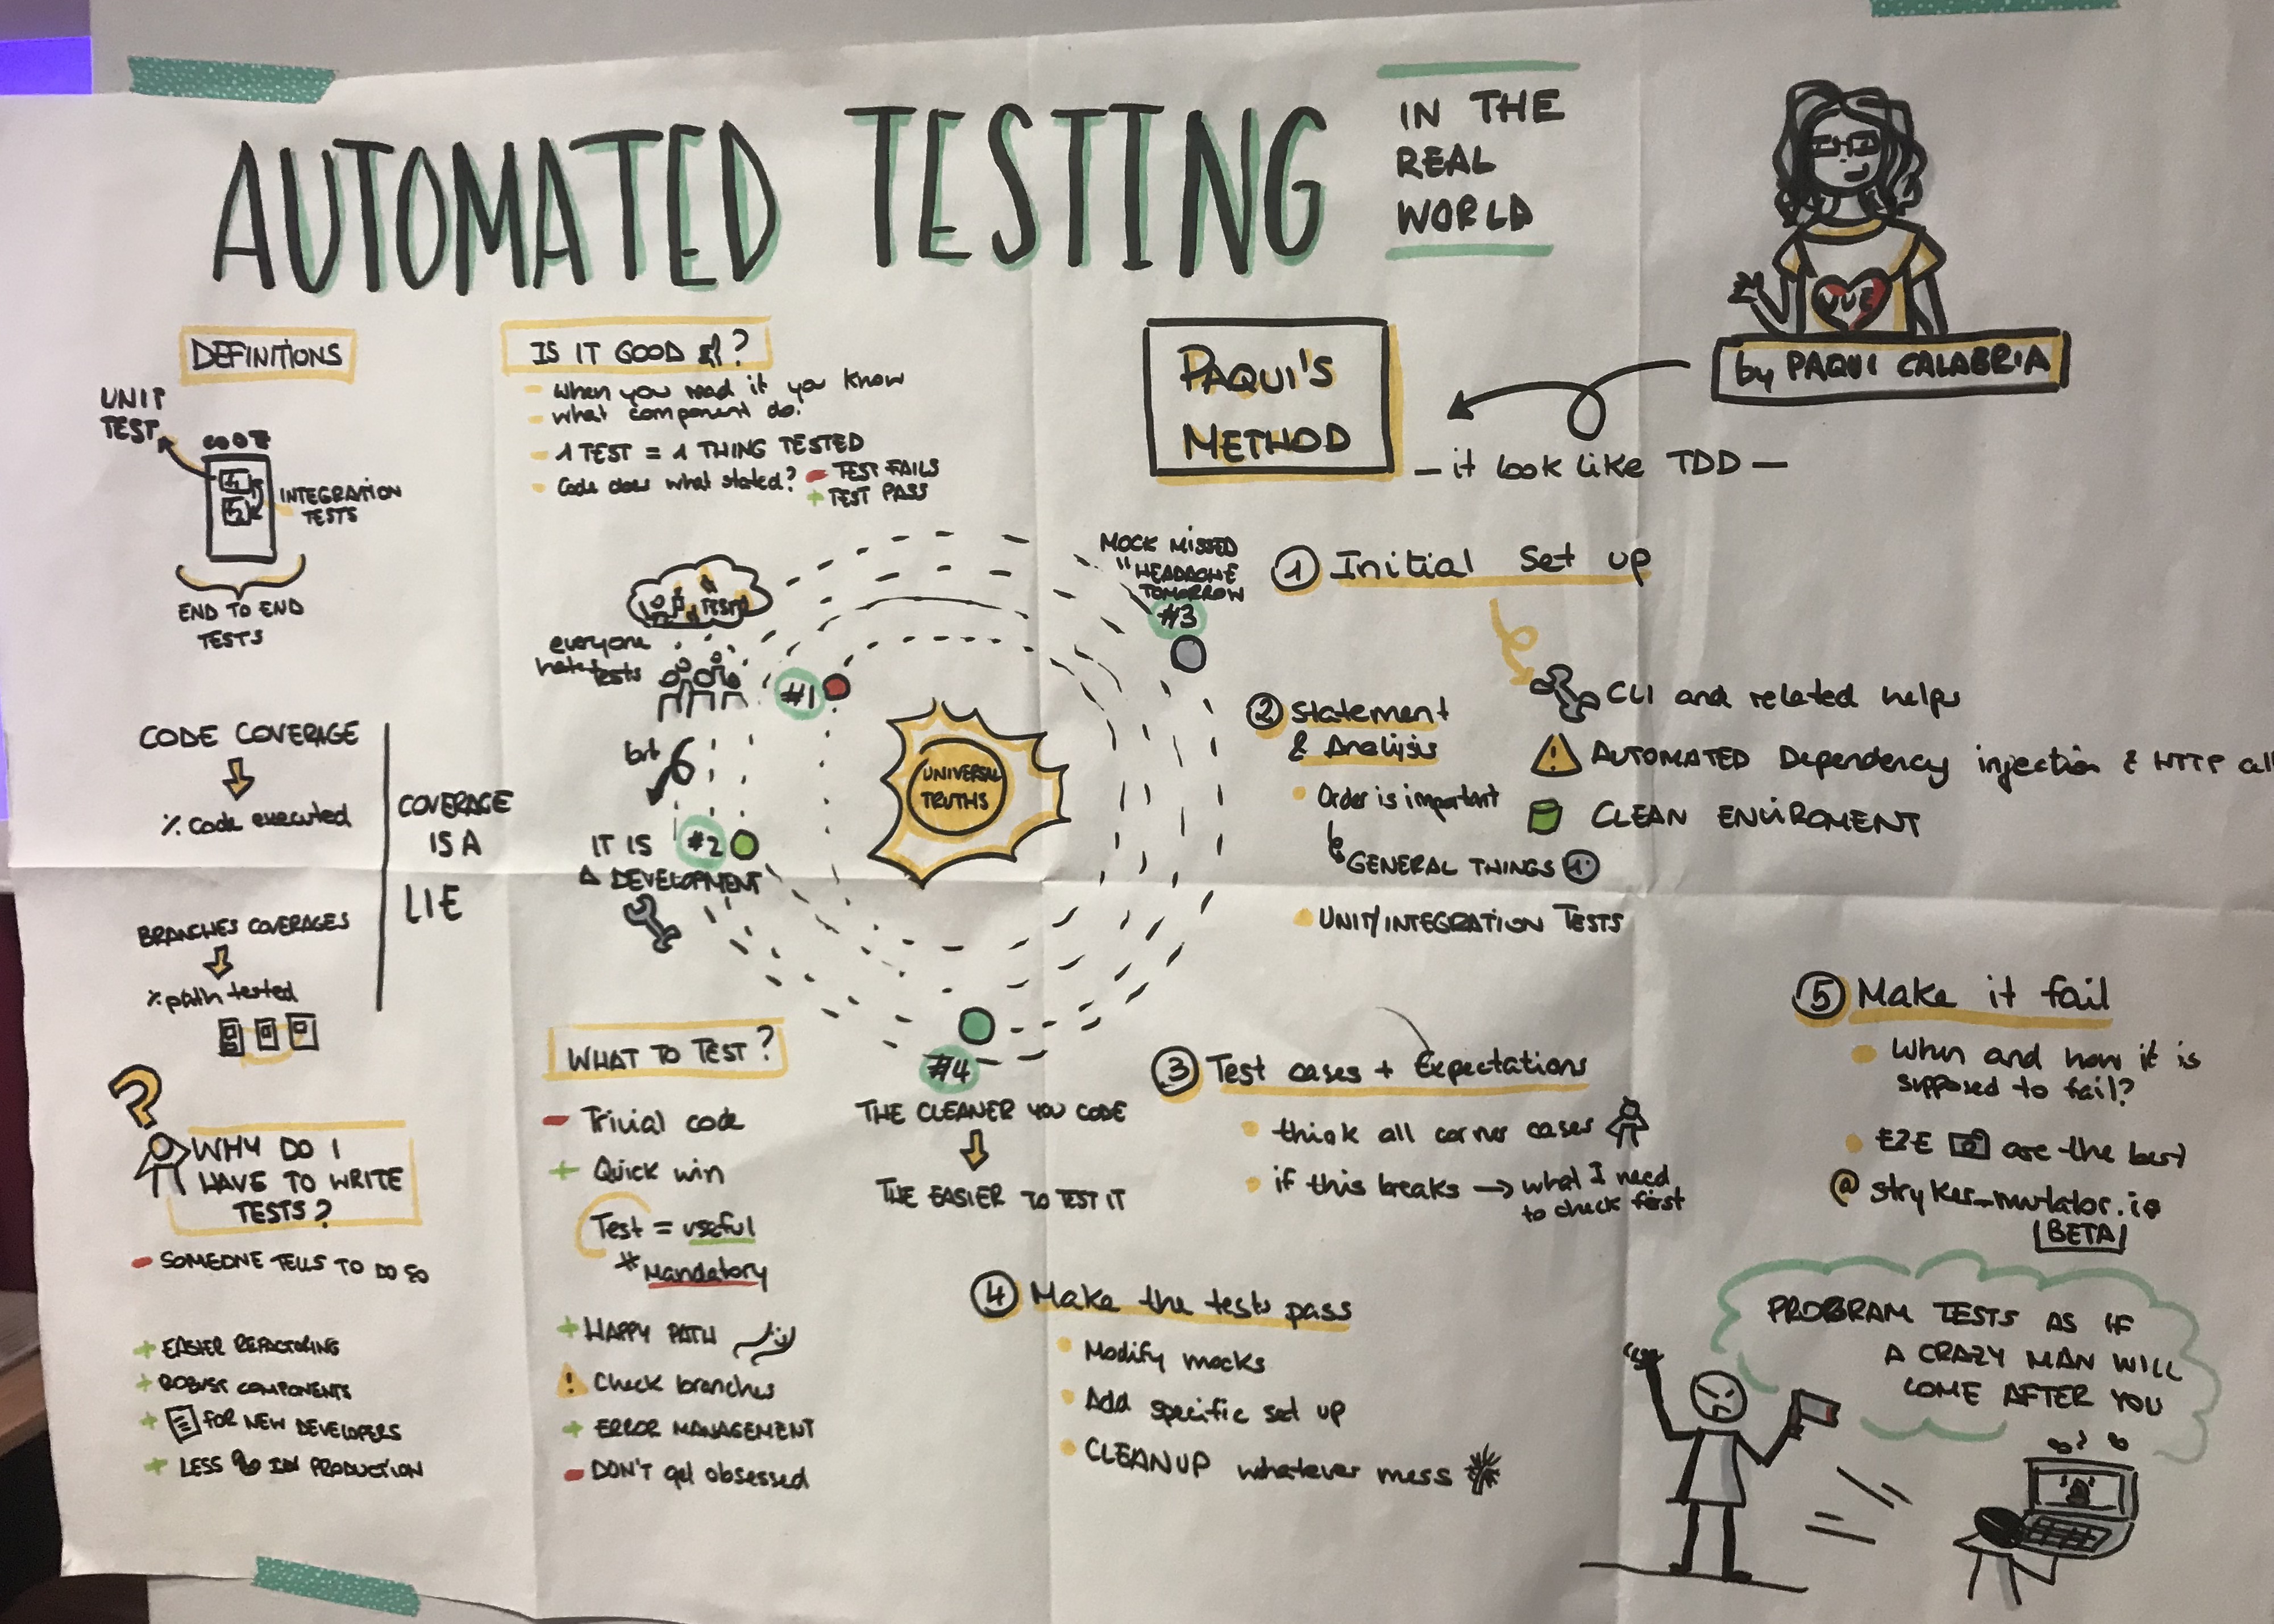 AUTOMATED TESTING
IN THE
REAL
WORLD
VUE
by PAQUI CALABRIA
DEFINITIONS
UNIT
TEST
CODE
INTEGRATION
TESTS
END TO END
TESTS
CODE COVERAGE
% Code executed
BRANCHES COVERAGES
% path tested
COVERAGE
IS A
LIE
WHY DO I
HAVE TO WRITE
TESTS?
- SOMEONE TELLS TO DO SO
+ EASIER REFACTORING
+ ROBUST COMPONENTS
+ FOR NEW DEVELOPERS
+ LESS IN PRODUCTION
IS IT GOOD ?
- When you read it you know
- what component do.
- 1 TEST = 1 THING TESTED
- Code does what stated? - TEST FAILS
+ TEST PASS
UNIVERSAL
TRUTHS
TESTS
everyone
hate tests
#1
but
IT IS #2
A DEVELOPMENT
MOCK MISSED
"HEADACHE
TOMORROW
#3
#4
THE CLEANER YOU CODE
THE EASIER TO TEST IT
WHAT TO TEST?
- Trivial code
+ Quick win
Test = useful
* Mandatory
+ HAPPY PATH
! Check branches
+ ERROR MANAGEMENT
- DON'T get obsessed
PAQUI'S
METHOD
- it look like TDD -
1 Initial Set up
CLI and related helps
! AUTOMATED Dependency injection & HTTP
CLEAN ENVIROMENT
2 Statement
& Analisis
Order is important
GENERAL THINGS 1º
UNIT/INTEGRATION TESTS
3 Test cases + Expectations
think all corner cases
if this breaks → what I need
to check first
4 Make the tests pass
Modify mocks
Add specific set up
CLEANUP whatever mess
5 Make it fail
When and how it is
supposed to fail?
E2E are the best
@ stryker_mutator.io
BETA
PROGRAM TESTS AS IF
A CRAZY MAN WILL
COME AFTER YOU